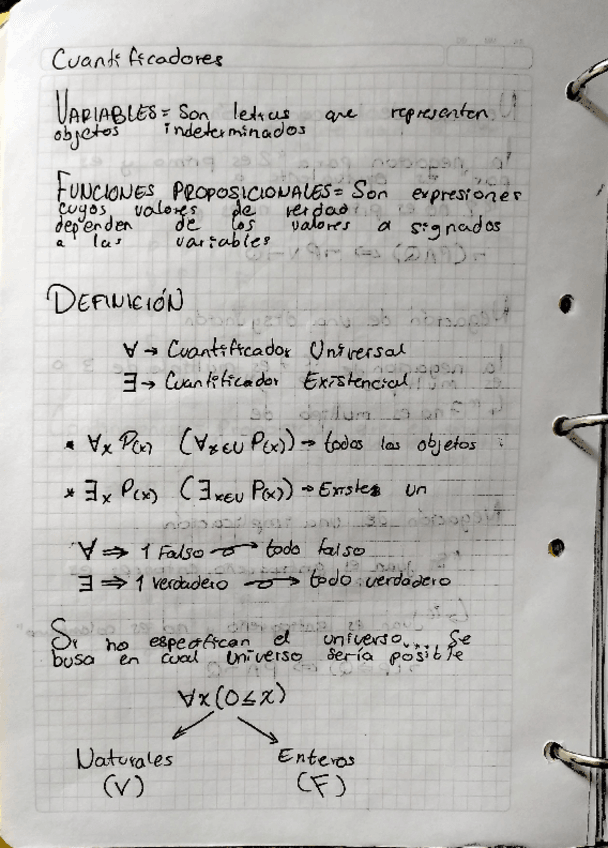 Cuantificadores
VARIABLES = Son letras que representen
objetos indeterminados
FUNCIONES PROPOSICIONALES = Son expresiones
cuyos valores de verdad
dependen de los valores a signados
a las variables
DEFINICIÓN
∀ → Cuantificador Universal
∃ → Cuantificador Existencial
* ∀x P(x) (∀x∈U P(x)) → todos los objetos
* ∃x P(x) (∃x∈U P(x)) → Existes un
∀ ⇒ 1 Falso → todo falso
∃ ⇒ 1 verdadero → todo verdadero
Si no especifican el universo... Se
busa en cual Universo sería posible
∀x(0≤x)
Naturales Enteros
(V) (F)